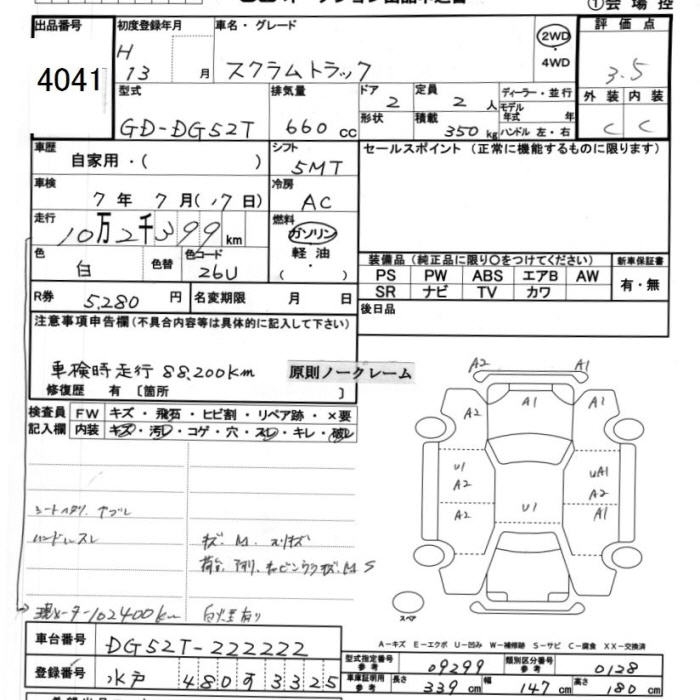 ①会場控
出品番号 4041
初度登録年月 H 13 月
車名・グレード スクラムトラック
2WD・4WD
評価点 3.5
外装 C 内装 C
型式 GD-DG52T
排気量 660 cc
ドア 2 定員 2 人
形状 積載 350 kg
ディーラー・並行
モデル年式 年
ハンドル 左・右
車歴 自家用・( )
シフト 5MT
セールスポイント(正常に機能するものに限ります)
車検 7年 7月(17日)
冷房 AC
走行 10万2千399km
燃料 ガソリン・軽油・( )
色 白 色替 色コード 26U
装備品(純正品に限り○をつけてください) 新車保証書
PS PW ABS エアB AW 有・無
SR ナビ TV カワ
R券 5,280 円 名変期限 月 日
後日品
注意事項申告欄(不具合内容等は具体的に記入して下さい)
車検時走行 88,200km
原則ノークレーム
修復歴 有 [箇所 ]
検査員記入欄 FW キズ・飛石・ヒビ割・リペア跡・×要
内装 キズ・汚レ・コゲ・穴・スレ・キレ・破レ
A2 A1
A2 A1 A1
U1 A2 UA1 A2
A2 U1 A1
シートヘタリ、ヤブレ
ハンドルスレ
キズ、M、スリキズ
現メーター102400km
スペア
A-キズ E-エクボ U-凹み W-補修跡 S-サビ C-腐食 XX-交換済
車台番号 DG52T-222222
登録番号 水戸 480 す 3325
型式指定番号 参考 09299 類別区分番号 参考 0128
車庫証明用 参考 長さ 339 cm 幅 147 cm 高さ 180 cm